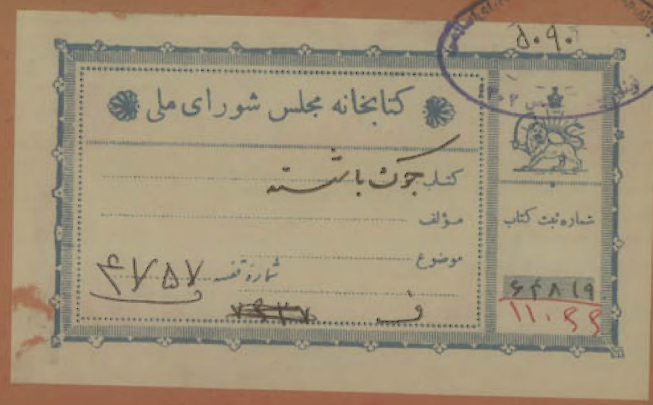 ۵۰۹۰
کتابخانه مجلس شورای ملی
کتاب جوگ باشسته
مؤلف
موضوع
شماره قفسه ۴۷۵۷
ف
شماره ثبت کتاب
۶۴۸۱۹
۱۱۰۶۶